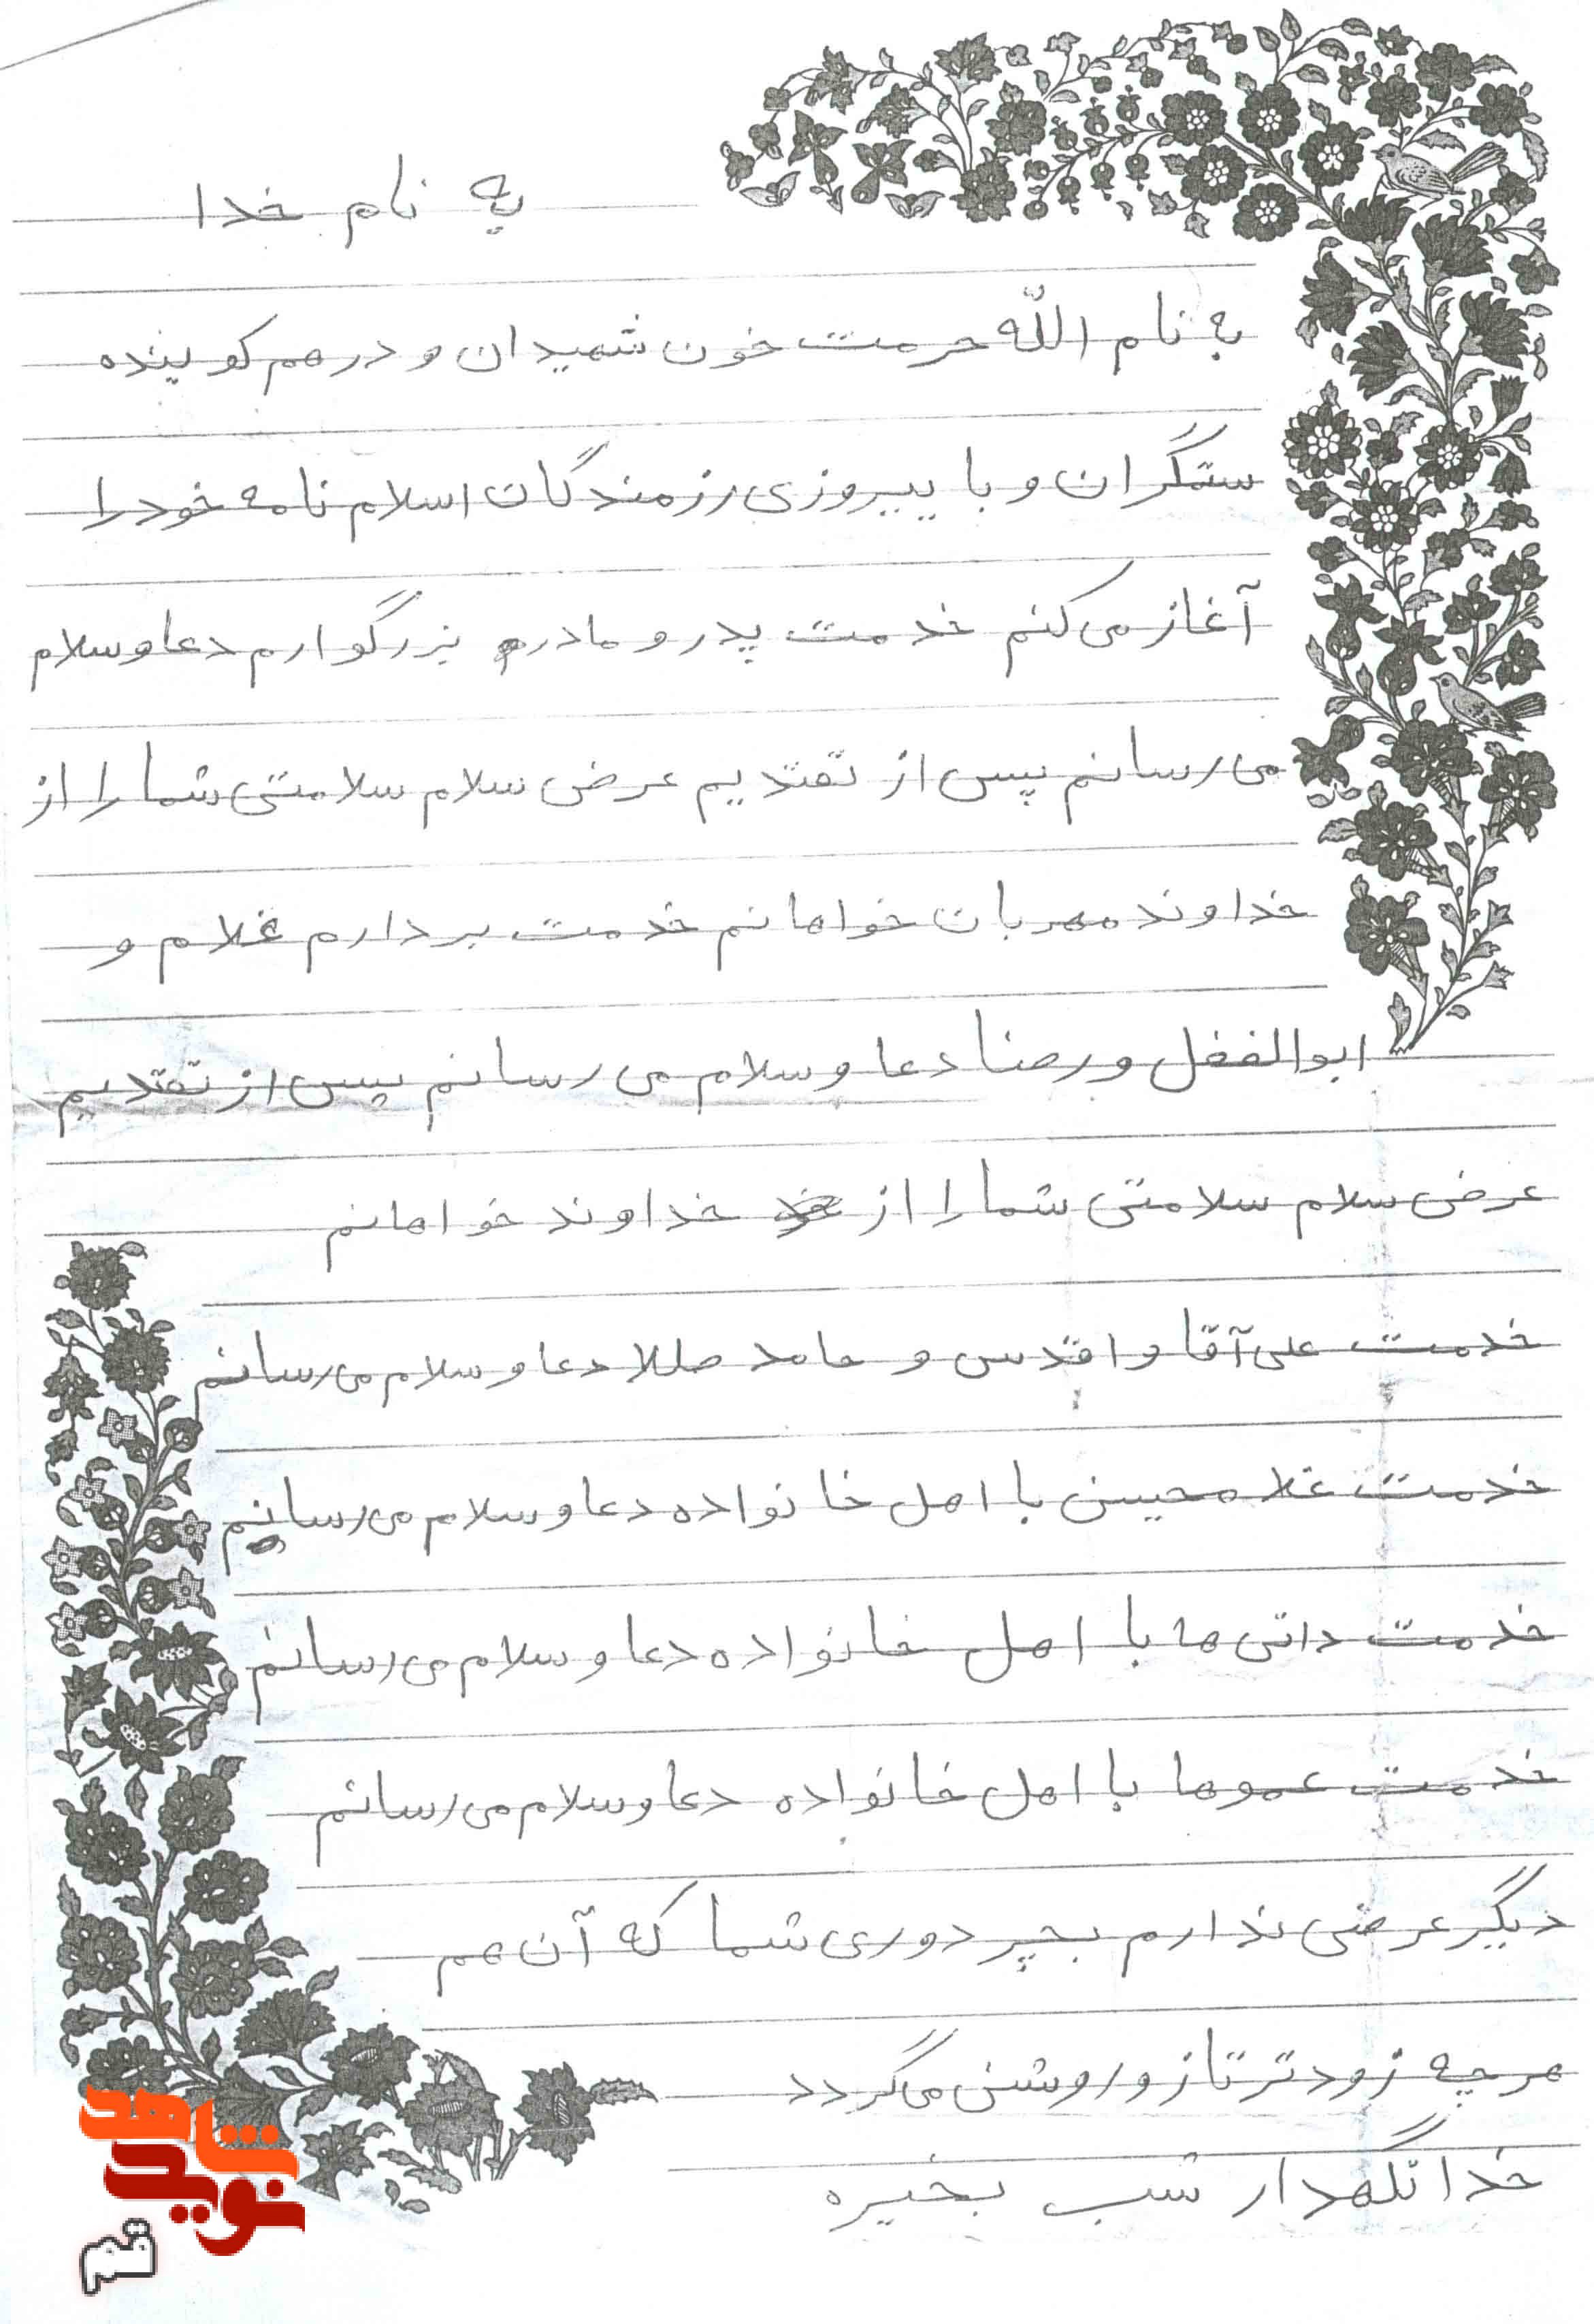 به نام خدا
به نام اللّه حرمت خون شهیدان و درهم کوبنده
ستمگران و با پیروزی رزمندگان اسلام نامه خود را
آغاز می کنم خدمت پدر و مادرم بزرگوارم دعا و سلام
می رسانم پس از تقدیم عرض سلام سلامتی شما را از
خداوند مهربان خواهانم خدمت بردارم غلام و
ابوالفضل و رضا دعا و سلام می رسانم پس از تقدیم
عرض سلام سلامتی شما را از خداوند خواهانم
خدمت علی آقا و اقدس و حامد دعا و سلام می رسانم
خدمت غلامحسین با اهل خانواده دعا و سلام می رسانم
خدمت دائی ها با اهل خانواده دعا و سلام می رسانم
خدمت عموها با اهل خانواده دعا و سلام می رسانم
دیگر عرضی ندارم بجز دوری شما که آن هم
هر چه زودتر تازو روشن می گردد
خدانگهدار شب بخیره
نوید شاهد
قم